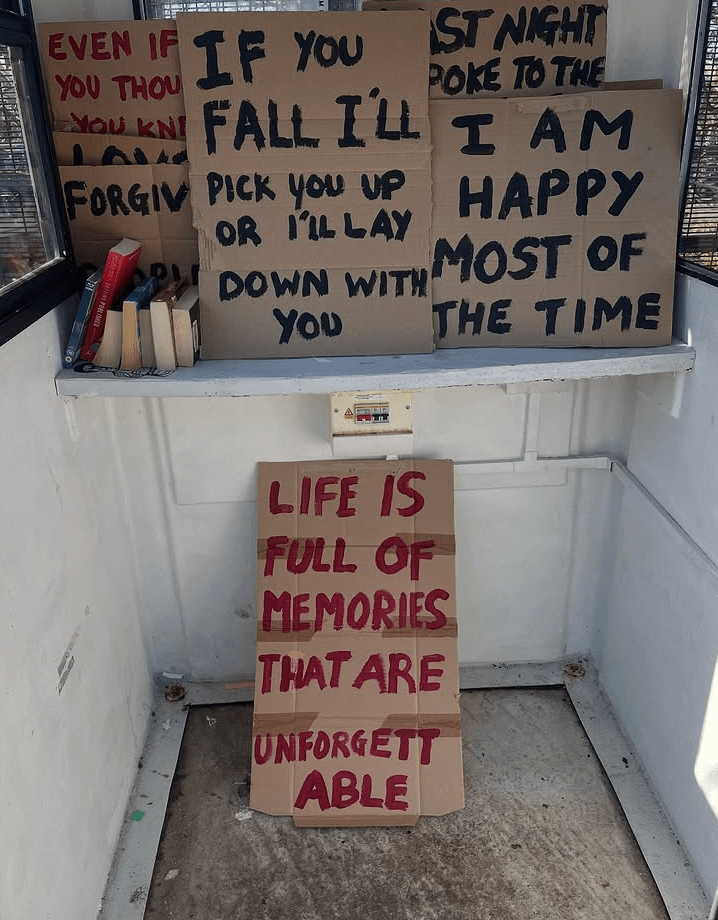 EVEN IF
YOU THOU
YOU KNE
FORGIV
IF YOU
FALL I'LL
PICK YOU UP
OR I'LL LAY
DOWN WITH
YOU
AST NIGHT
POKE TO THE
I AM
HAPPY
MOST OF
THE TIME
LIFE IS
FULL OF
MEMORIES
THAT ARE
UNFORGETT
ABLE